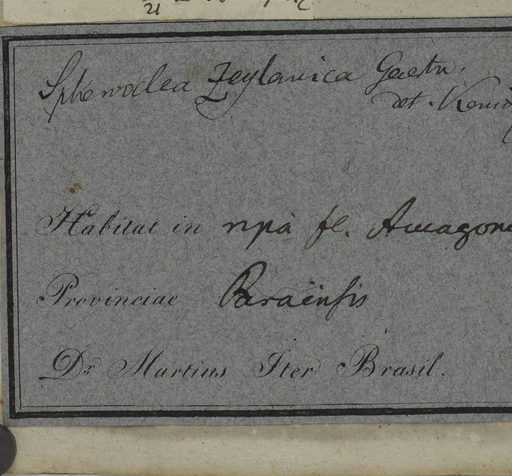 Sphenoclea Zeylanica Gaertn.
det.
Habitat in ripa fl.
Provinciae Paraënsis
Dr Martius Iter Brasil.